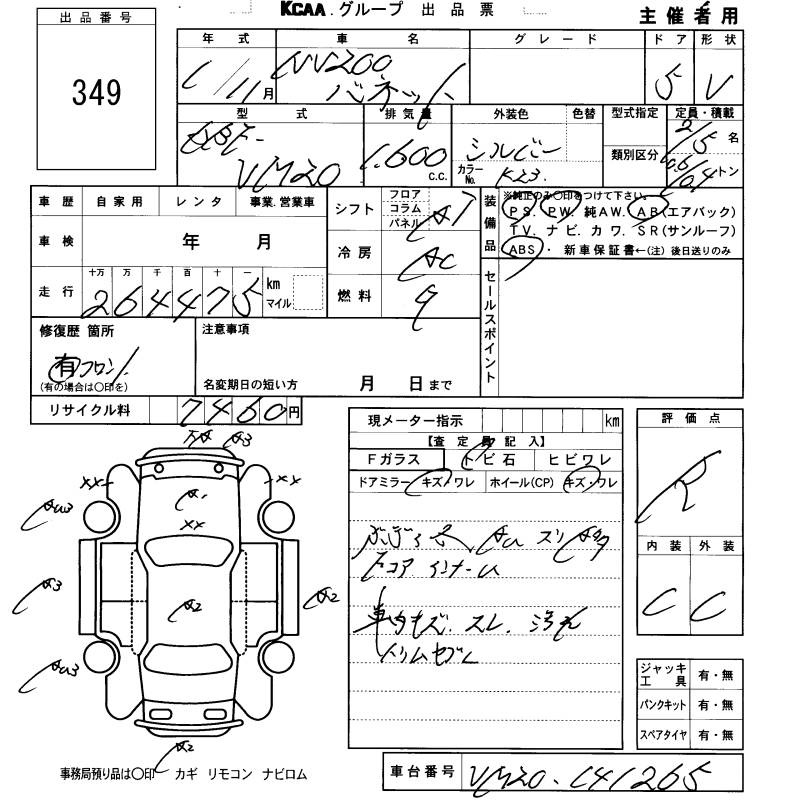 KCAA.グループ 出品票
主催者用
出品番号
349
年式 車名 グレード ドア 形状
1/11月 NV200 バネット 5 V
型式 排気量 外装色 色替 型式指定 定員・積載
DBF-VM20 1,600 c.c. シルバー カラーNo. K23 類別区分 2/5名 0.6/0.4トン
車歴 自家用 レンタ 事業.営業車
シフト フロア コラム パネル AT
車検 年 月
冷房 AC
走行 十万 万 千 百 十 一
264475 km マイル
燃料 G
装備品
※純正のみ○印をつけて下さい。
PS. PW. 純AW. AB(エアバック)
TV. ナビ. カワ. SR(サンルーフ)
ABS ・ 新車保証書←(注) 後日送りのみ
セールスポイント
修復歴 箇所
有 フロント
(有の場合は○印を)
注意事項
名変期日の短い方 月 日まで
リサイクル料 7460円
現メーター指示 km
【査定員記入】
Fガラス トビ石 ヒビワレ
ドアミラー キズ/ワレ ホイール(CP) キズ・ワレ
コアインナーU
車内キズ.スレ.汚れ
トリムセグレ
評価点
R
内装 外装
C C
ジャッキ工具 有・無
パンクキット 有・無
スペアタイヤ 有・無
A3
XX XX
A1
AU3
XX
A3
A2
A2
AU3
A2
事務局預り品は○印 カギ リモコン ナビロム
車台番号 VM20-141265